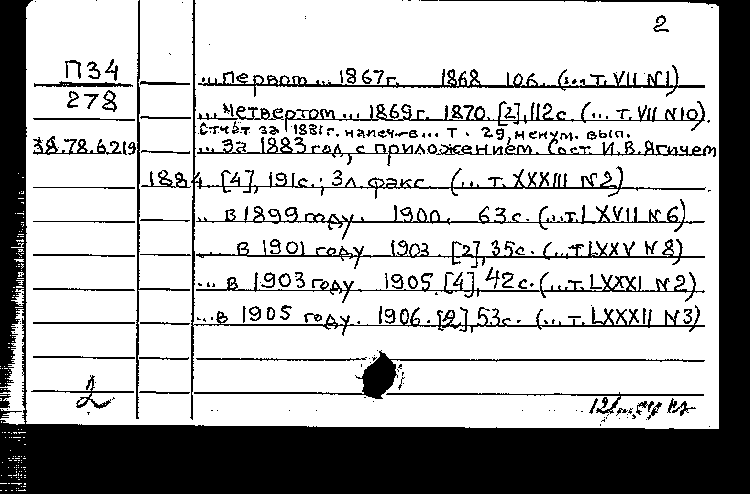 2
П34
278
38.78.6.219
... Первом ... 1867г. 1868 106. (... т. VII №1)
... Четвертом ... 1869г. 1870. [2], 112с. (... т. VII №10).
Отчёт за 1881г. напеч. в ... т. 29, ненум. вып.
... за 1883 год, с приложением. Сост. И.В. Ягичем
1884. [4], 191с.; 3л. факс. (... т. XXXIII №2)
... в 1899 году. 1900. 63с. (... т. LXVII №6)
... в 1901 году. 1903. [2], 35с. (... т. LXXV №8)
... в 1903 году. 1905. [4], 42с. (... т. LXXXI №2)
... в 1905 году. 1906. [2], 53с. (... т. LXXXII №3)
2